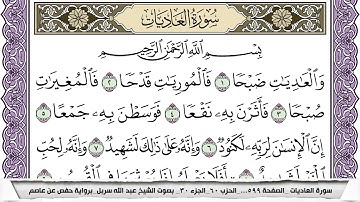 سورة العاديات
بِسْمِ اللَّهِ الرَّحْمَٰنِ الرَّحِيمِ
وَالْعَادِيَاتِ ضَبْحًا ١ فَالْمُورِيَاتِ قَدْحًا ٢ فَالْمُغِيرَاتِ
صُبْحًا ٣ فَأَثَرْنَ بِهِ نَقْعًا ٤ فَوَسَطْنَ بِهِ جَمْعًا ٥
إِنَّ الْإِنسَانَ لِرَبِّهِ لَكَنُودٌ ٦ وَإِنَّهُ عَلَىٰ ذَٰلِكَ لَشَهِيدٌ ٧ وَإِنَّهُ لِحُبِّ
سورة العاديات _الصفحة ٥٩٩ ... الحزب ٦٠ الجزء ٣٠. بصوت الشيخ عبد الله سربل برواية حفص عن عاصم